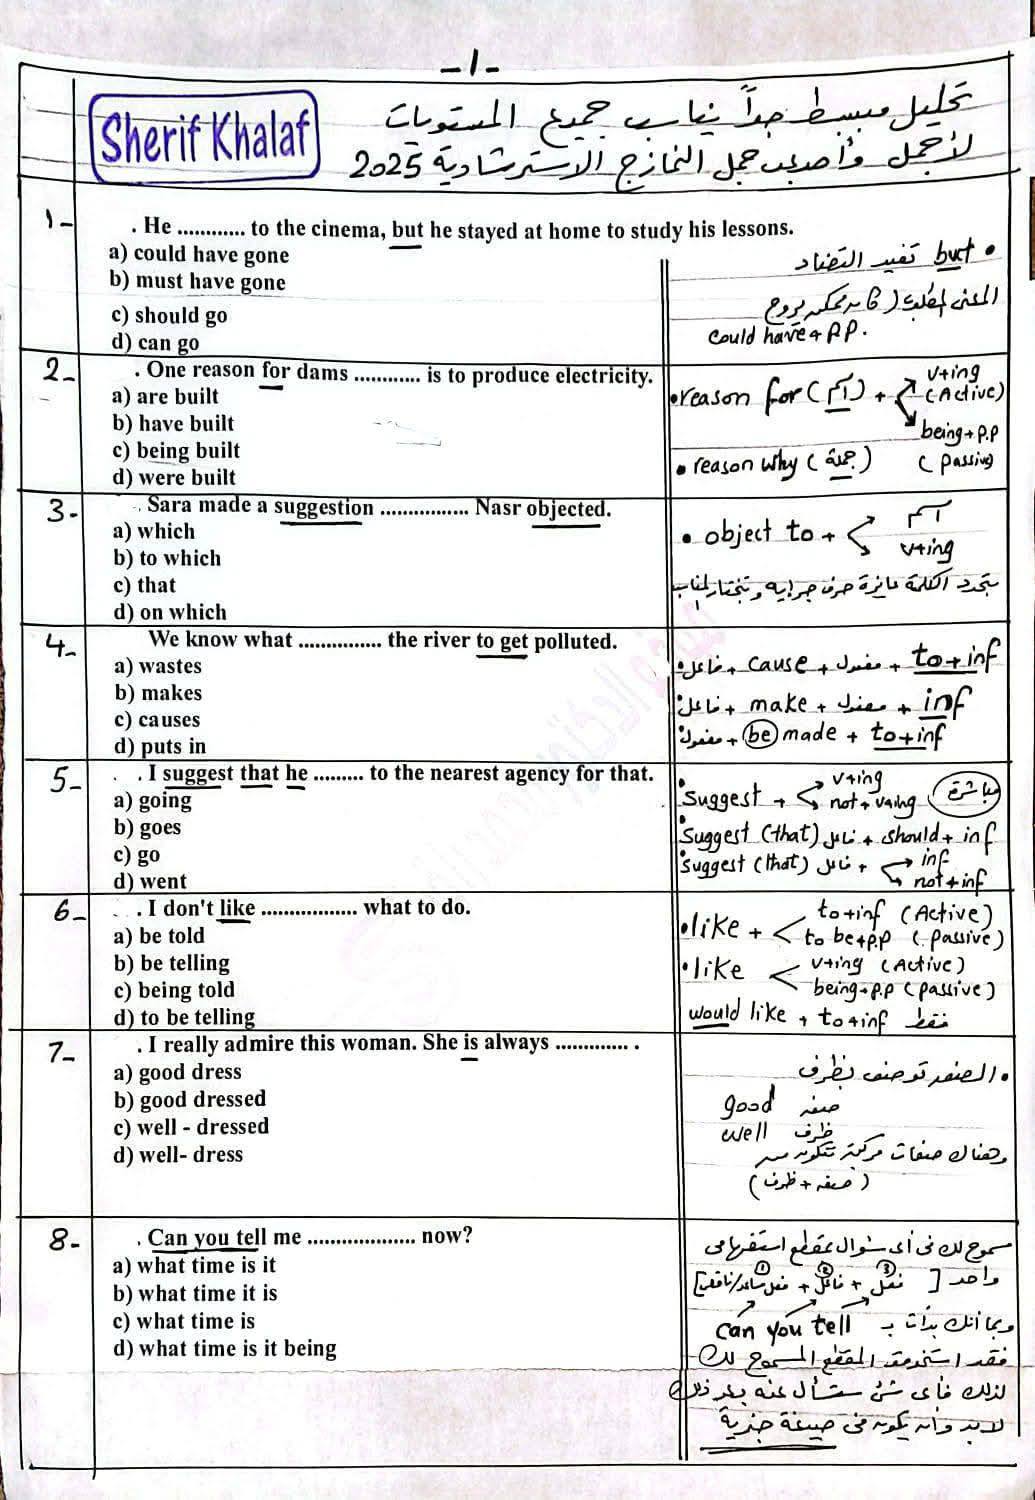 -1-
Sherif Khalaf
تحليل مبسط جداً يناسب جميع المستويات
لأجمل وأصعب جمل النماذج الاسترشادية 2025
1-
. He ............ to the cinema, but he stayed at home to study his lessons.
a) could have gone
b) must have gone
c) should go
d) can go
• but تفيد التضاد
المعنى المطلوب (كان ممكن يروح
could have + P.P.
2-
. One reason for dams ............ is to produce electricity.
a) are built
b) have built
c) being built
d) were built
• reason for (اسم) + v+ing (Active)
being+p.p (passive)
• reason why (جملة)
3-
. Sara made a suggestion ................ Nasr objected.
a) which
b) to which
c) that
d) on which
• object to + اسم
v+ing
بتحدد الكلمة عايزة حرف جر ايه وتختار المناسب
4-
We know what ............... the river to get polluted.
a) wastes
b) makes
c) causes
d) puts in
فاعل + cause + مفعول + to+inf
فاعل + make + مفعول + inf
مفعول + be made + to+inf
5-
. . I suggest that he ......... to the nearest agency for that.
a) going
b) goes
c) go
d) went
suggest + v+ing
not+v+ing
مباشرة
suggest (that) فاعل + should + inf
suggest (that) فاعل + inf
not+inf
6-
. . I don't like ................. what to do.
a) be told
b) be telling
c) being told
d) to be telling
• like + to+inf (Active)
to be+p.p (passive)
• like v+ing (Active)
being+p.p (passive)
would like + to+inf فقط
7-
. I really admire this woman. She is always ............. .
a) good dress
b) good dressed
c) well - dressed
d) well- dress
• الصفة توصف بظرف
good صفة
well ظرف
وهناك صفات مركبة تتكون من
(صفة + ظرف)
8-
. Can you tell me ................... now?
a) what time is it
b) what time it is
c) what time is
d) what time is it being
مسموح لك فى أى سؤال بمقطع استفهامى
واحد [فعل مساعد/ناقص + فاعل + فعل]
1 2 3
وبما أنك بدأت بـ can you tell
فقد استخدمت المقطع المسموح لك
لذلك فأى شئ ستسأل عنه بعد ذلك
لابد وأن يكون فى صيغة خبرية